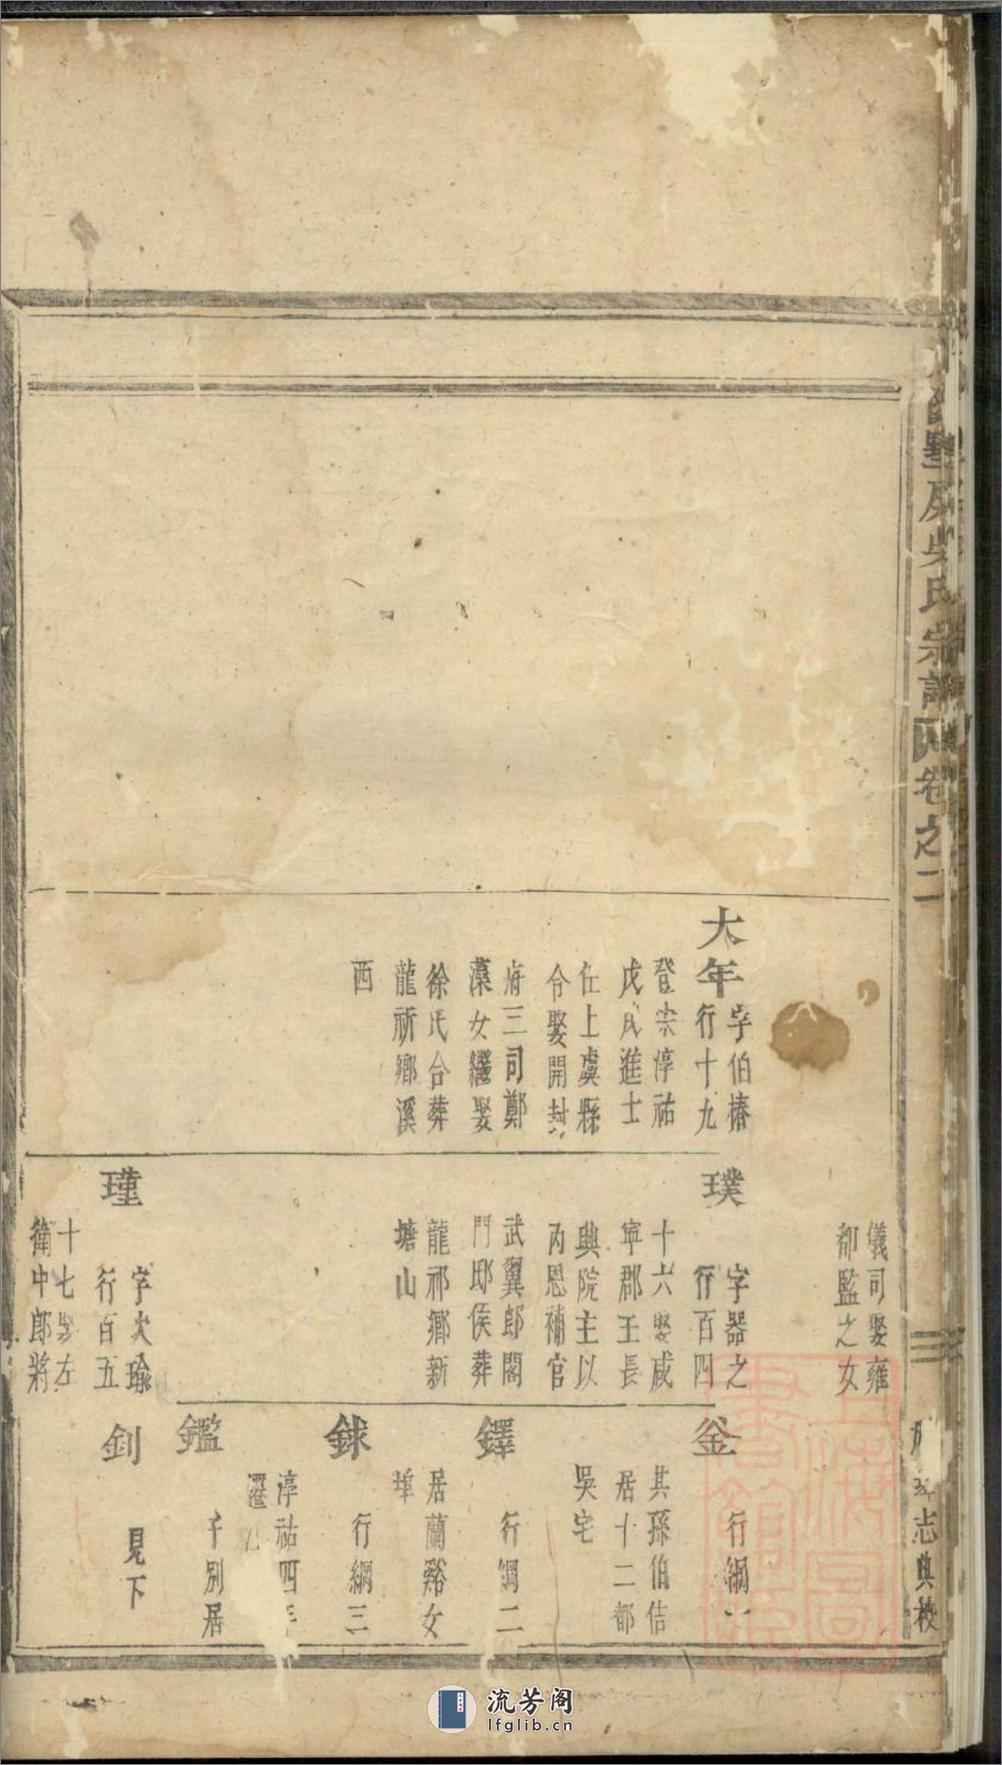 房吳氏宗譜
卷之二
志典校
儀司娶雍
都監之女
大年
字伯椿
行十九
登宗淳祐
戊戌進士
任上虞縣
令娶開封
府三司鄭
藻女繼娶
徐氏合葬
龍祈鄉溪
西
璞
字器之
行百四
十六娶咸
寧郡王長
典院主以
丙恩補官
武翼郎閤
門邸侯葬
龍祁鄉新
塘山
瑾
字次瑜
行百五
十七娶左
衛中郎將
釜
行綱
其孫伯佶
居十二都
吳宅
鐸
行綱二
居蘭谿女
埠
銶
行綱三
淳祐四年
鑑
千別居
釗
見下
上海圖書館藏
流芳阁
lfglib.cn